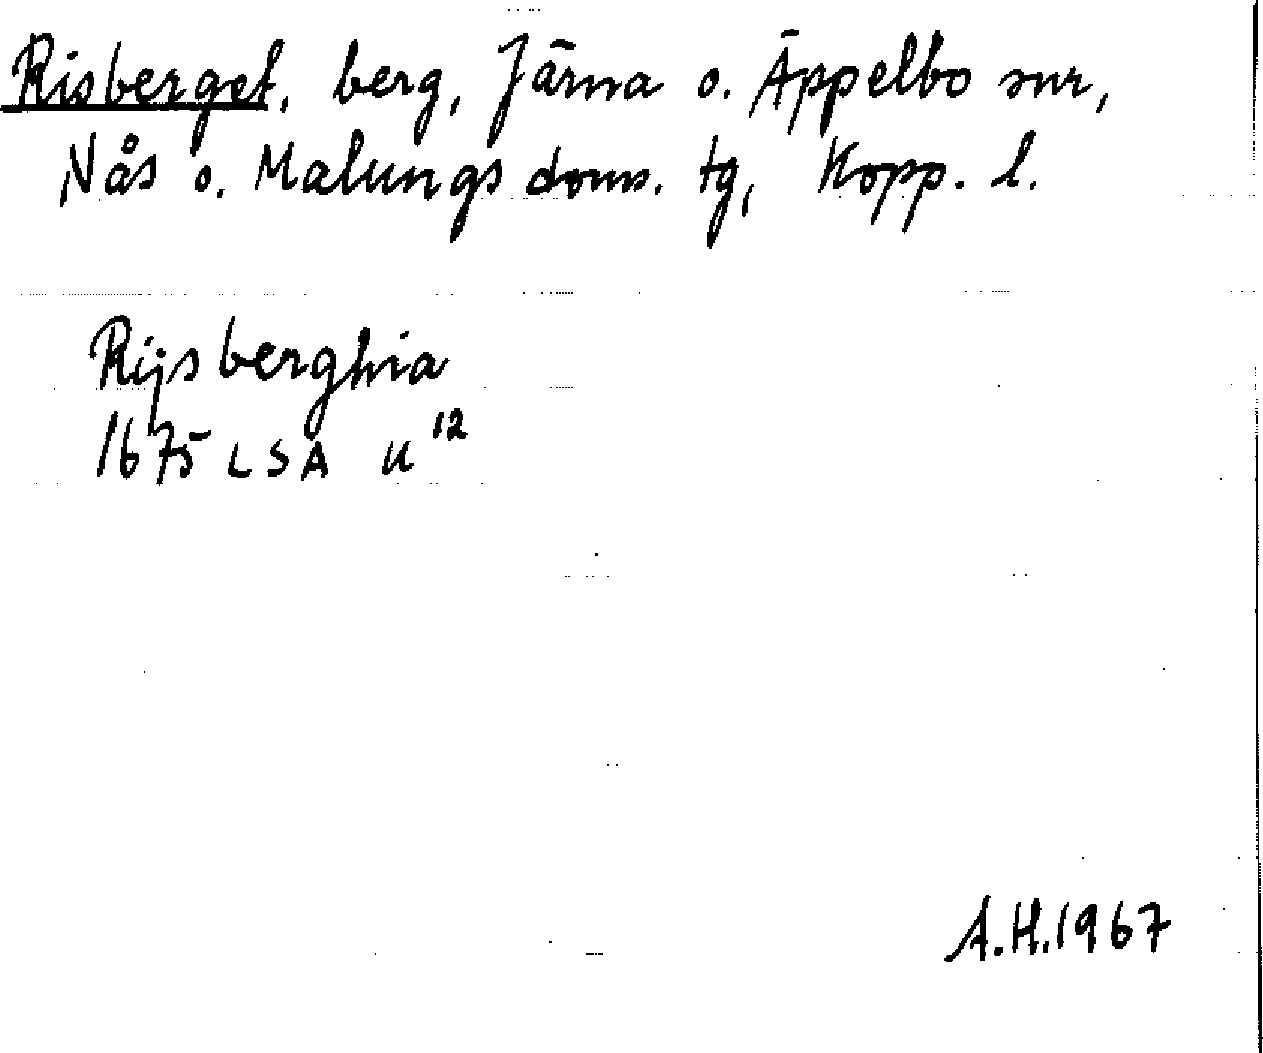 Risberget, berg, Järna o. Äppelbo snr,
Nås o. Malungs doms. tg, Kopp. l.
Rijsberghia
1675 LSA U 12
A.H.1967